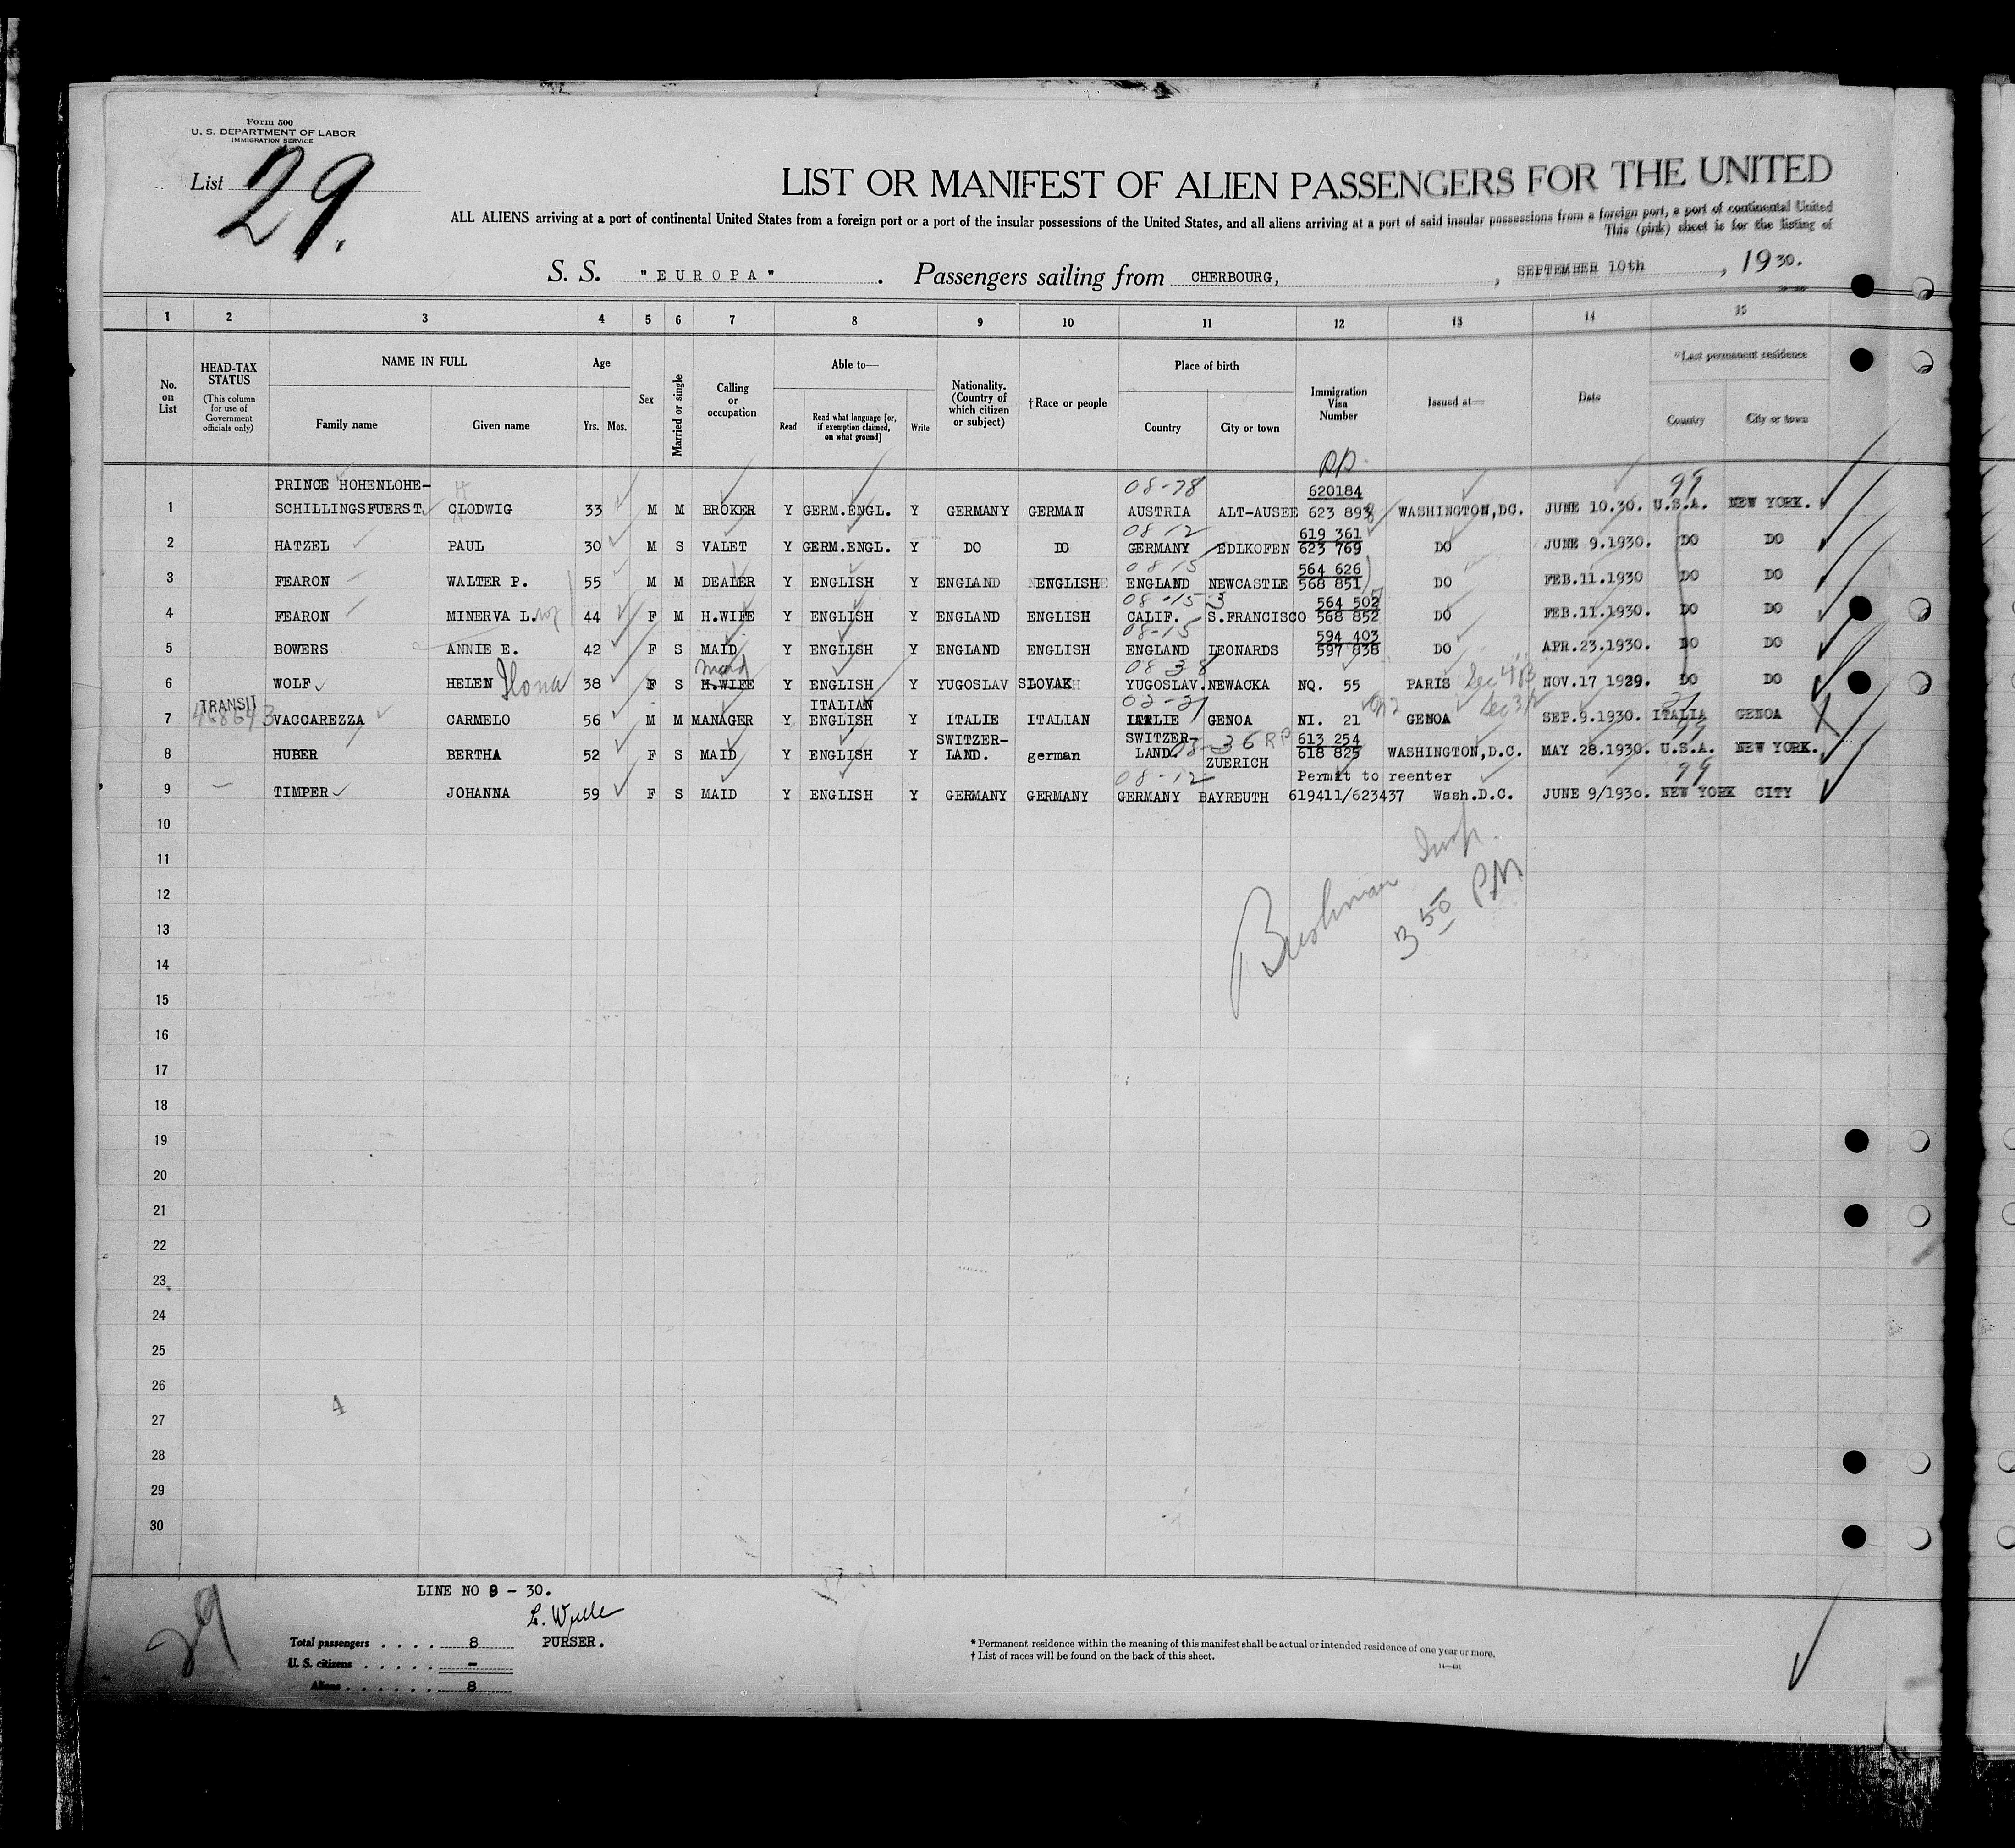 Form 500
U. S. DEPARTMENT OF LABOR
IMMIGRATION SERVICE
List 29.
LIST OR MANIFEST OF ALIEN PASSENGERS FOR THE UNITED
ALL ALIENS arriving at a port of continental United States from a foreign port or a port of the insular possessions of the United States, and all aliens arriving at a port of said insular possessions from a foreign port, a port of continental United
This (pink) sheet is for the listing of
S. S. "EUROPA" . Passengers sailing from CHERBOURG, , SEPTEMBER 10th , 19 30.
1 2 3 4 5 6 7 8 9 10 11 12 13 14 15
No. on List
HEAD-TAX STATUS (This column for use of Government officials only)
NAME IN FULL
Family name Given name
Age
Yrs. Mos.
Sex
Married or single
Calling or occupation
Able to—
Read
Read what language [or, if exemption claimed, on what ground]
Write
Nationality. (Country of which citizen or subject)
†Race or people
Place of birth
Country City or town
Immigration Visa Number
Issued at—
Date
*Last permanent residence
Country City or town
PRINCE HOHENLOHE- 08-78 620184 99
1 SCHILLINGSFUERST CLODWIG 33 M M BROKER Y GERM.ENGL. Y GERMANY GERMAN AUSTRIA ALT-AUSEE 623 893 WASHINGTON,DC. JUNE 10.30. U.S.A. NEW YORK.
08-12 619 361
2 HATZEL PAUL 30 M S VALET Y GERM.ENGL. Y DO DO GERMANY EDLKOFEN 623 769 DO JUNE 9.1930. DO DO
08-15 564 626
3 FEARON WALTER P. 55 M M DEALER Y ENGLISH Y ENGLAND ENGLISH ENGLAND NEWCASTLE 568 851 DO FEB.11.1930 DO DO
08-15 564 502
4 FEARON MINERVA L. 44 F M H.WIFE Y ENGLISH Y ENGLAND ENGLISH CALIF. S.FRANCISCO 568 852 DO FEB.11.1930. DO DO
08-15 594 403
5 BOWERS ANNIE E. 42 F S MAID Y ENGLISH Y ENGLAND ENGLISH ENGLAND LEONARDS 597 838 DO APR.23.1930. DO DO
Maid 08 38
6 WOLF HELEN Ilona 38 F S H.WIFE Y ENGLISH Y YUGOSLAV SLOVAK YUGOSLAV. NEWACKA NQ. 55 PARIS Sec 4B NOV.17 1929. DO DO
TRANSIT ITALIAN 02-21 21
7 VACCAREZZA CARMELO 56 M M MANAGER Y ENGLISH Y ITALIE ITALIAN ITALIE GENOA NI. 21 GENOA SEP.9.1930. ITALIA GENOA
SWITZER- SWITZER- 613 254 99
8 HUBER BERTHA 52 F S MAID Y ENGLISH Y LAND. german LAND. 08-36 RP ZUERICH 618 825 WASHINGTON,D.C. MAY 28.1930. U.S.A. NEW YORK.
08-12 Permit to reenter 99
9 TIMPER JOHANNA 59 F S MAID Y ENGLISH Y GERMANY GERMANY GERMANY BAYREUTH 619411/623437 Wash.D.C. JUNE 9/1930. NEW YORK CITY
10
11
12
13
14
15
16
17
18
19
20
21
22
23
24
25
26
27
28
29
30
Bushman Insp.
3 50 PM
4
29
LINE NO 9 - 30.
PURSER.
Total passengers . . . . 8
U. S. citizens . . . . . –
Aliens . . . . . . 8
* Permanent residence within the meaning of this manifest shall be actual or intended residence of one year or more.
† List of races will be found on the back of this sheet.